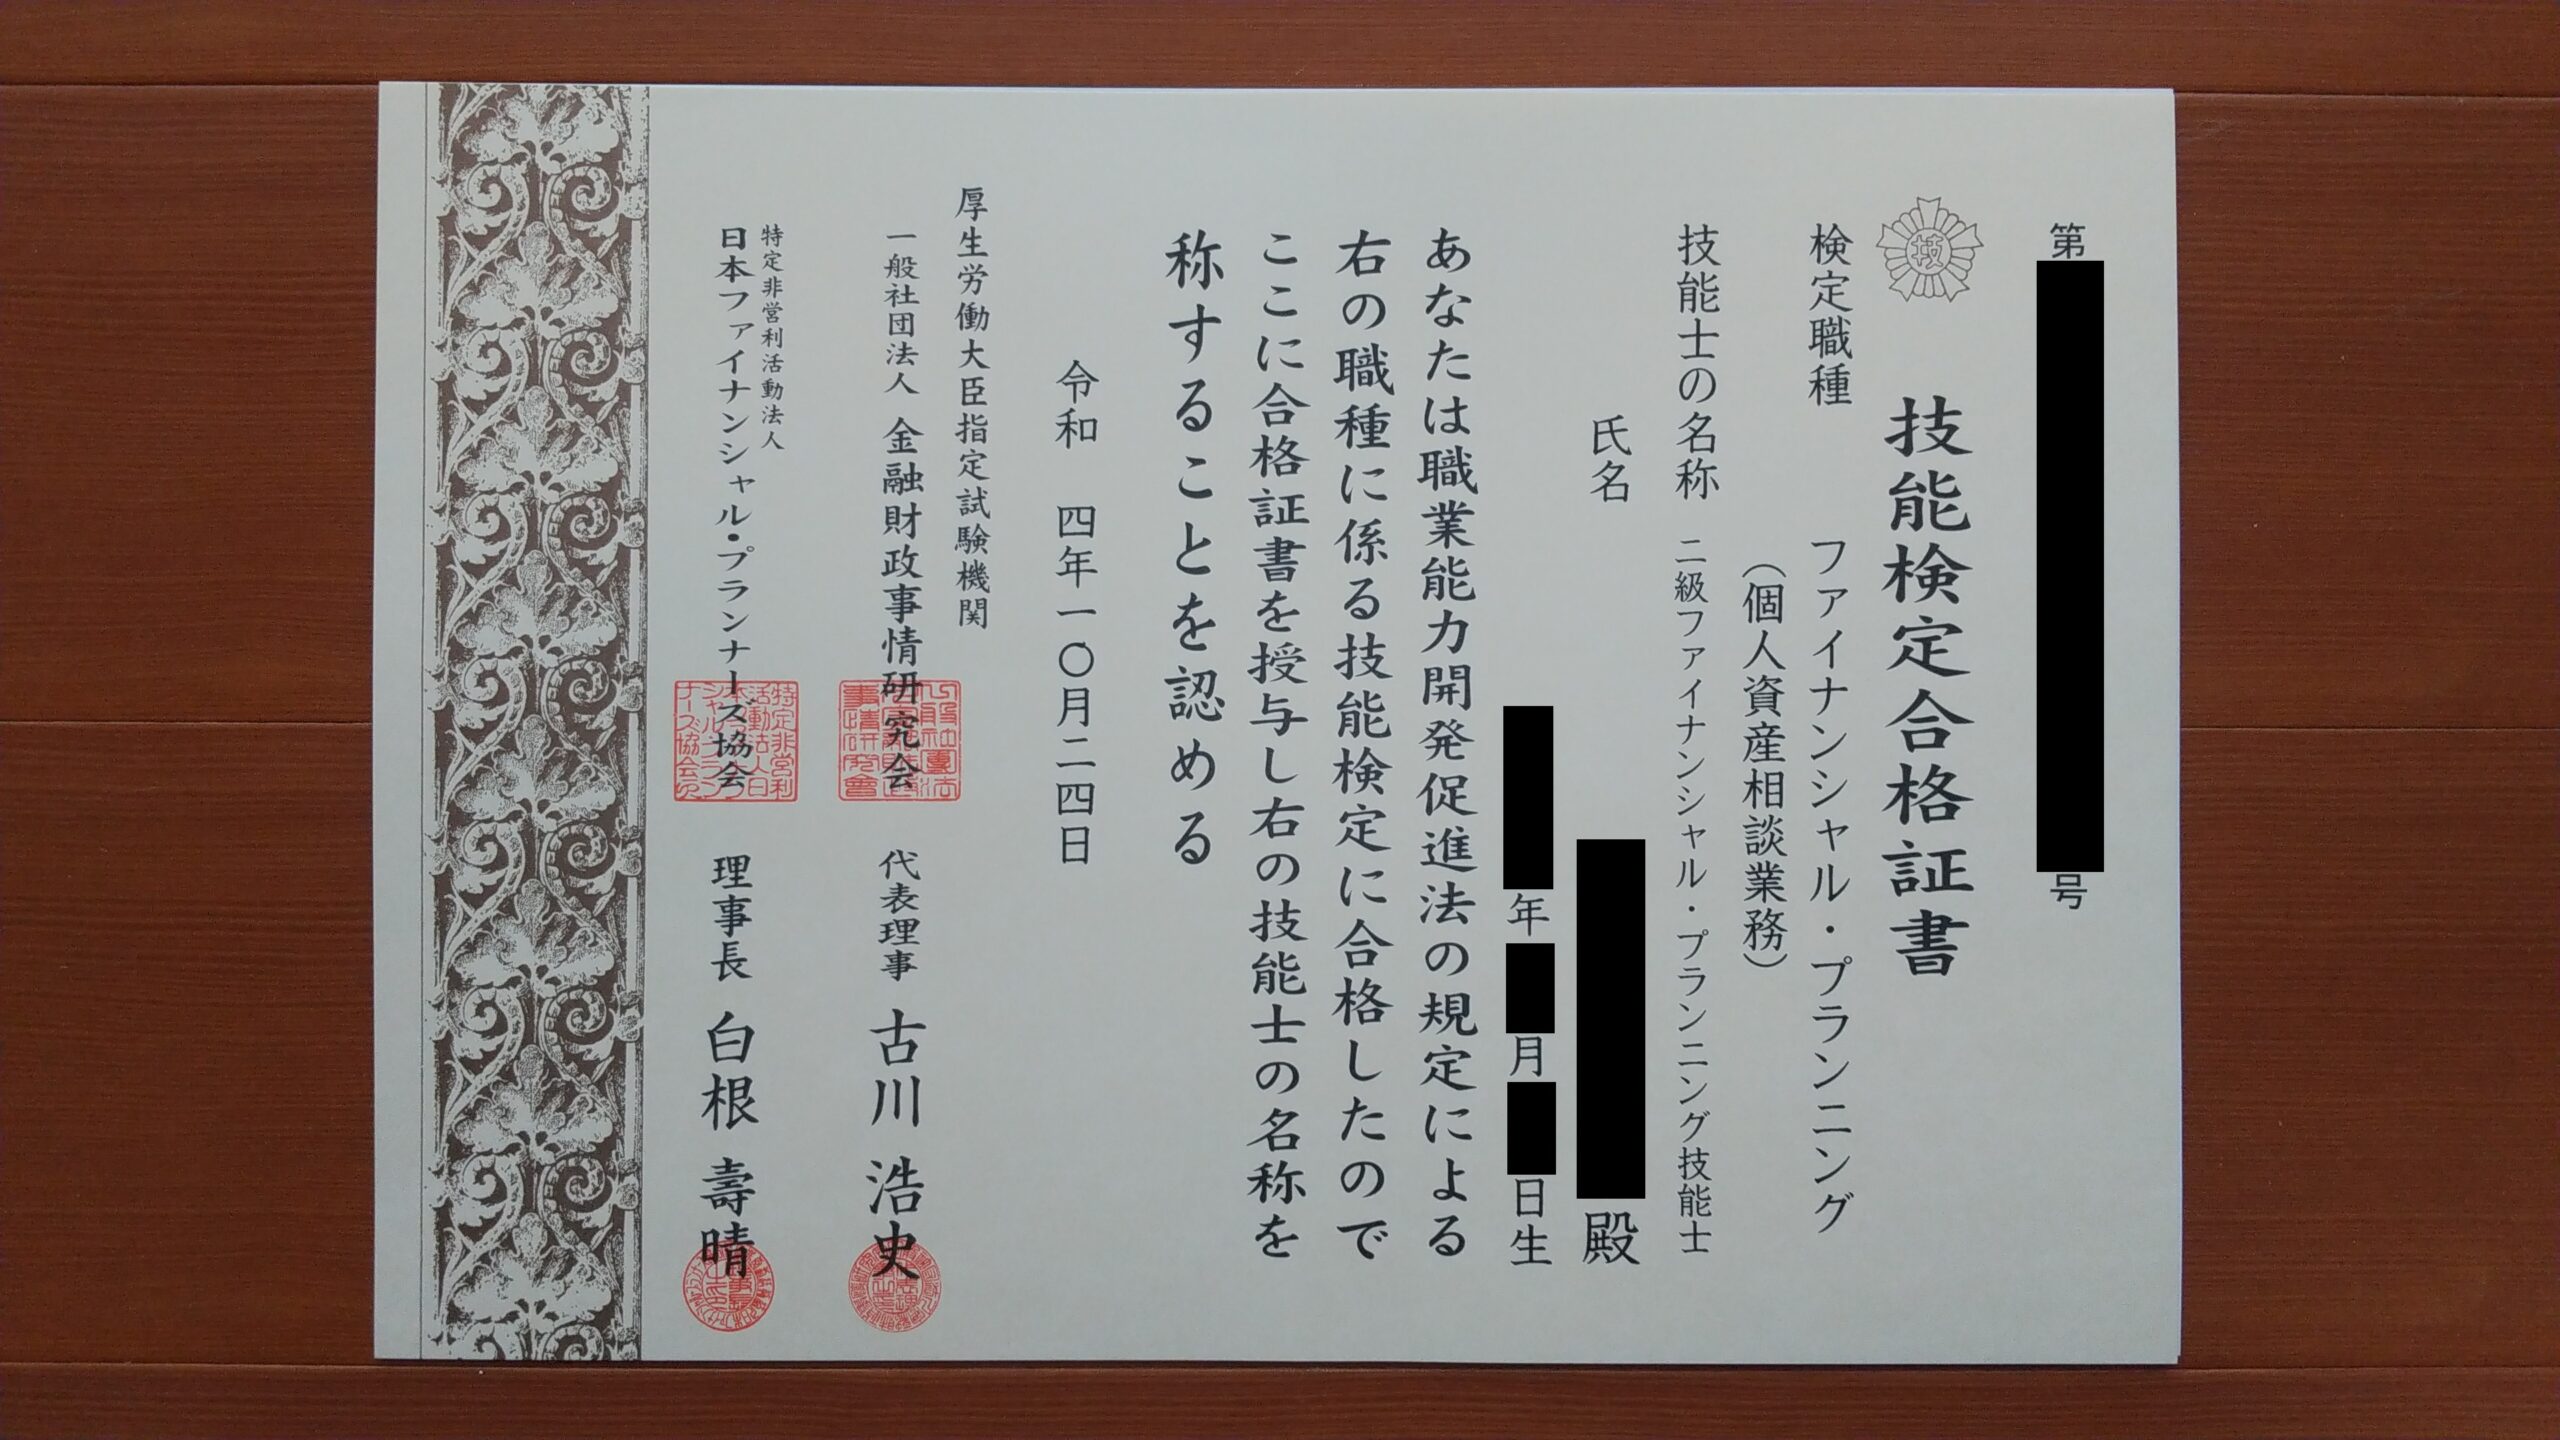 第
号
技
技能検定合格証書
検定職種 ファイナンシャル・プランニング
(個人資産相談業務)
技能士の名称 二級ファイナンシャル・プランニング技能士
氏名 殿
年 月 日生
あなたは職業能力開発促進法の規定による
右の職種に係る技能検定に合格したので
ここに合格証書を授与し右の技能士の名称を
称することを認める
令和 四年一〇月二四日
厚生労働大臣指定試験機関
一般社団法人 金融財政事情研究会 代表理事 古川 浩史
特定非営利活動法人
日本ファイナンシャル・プランナーズ協会 理事長 白根 壽晴